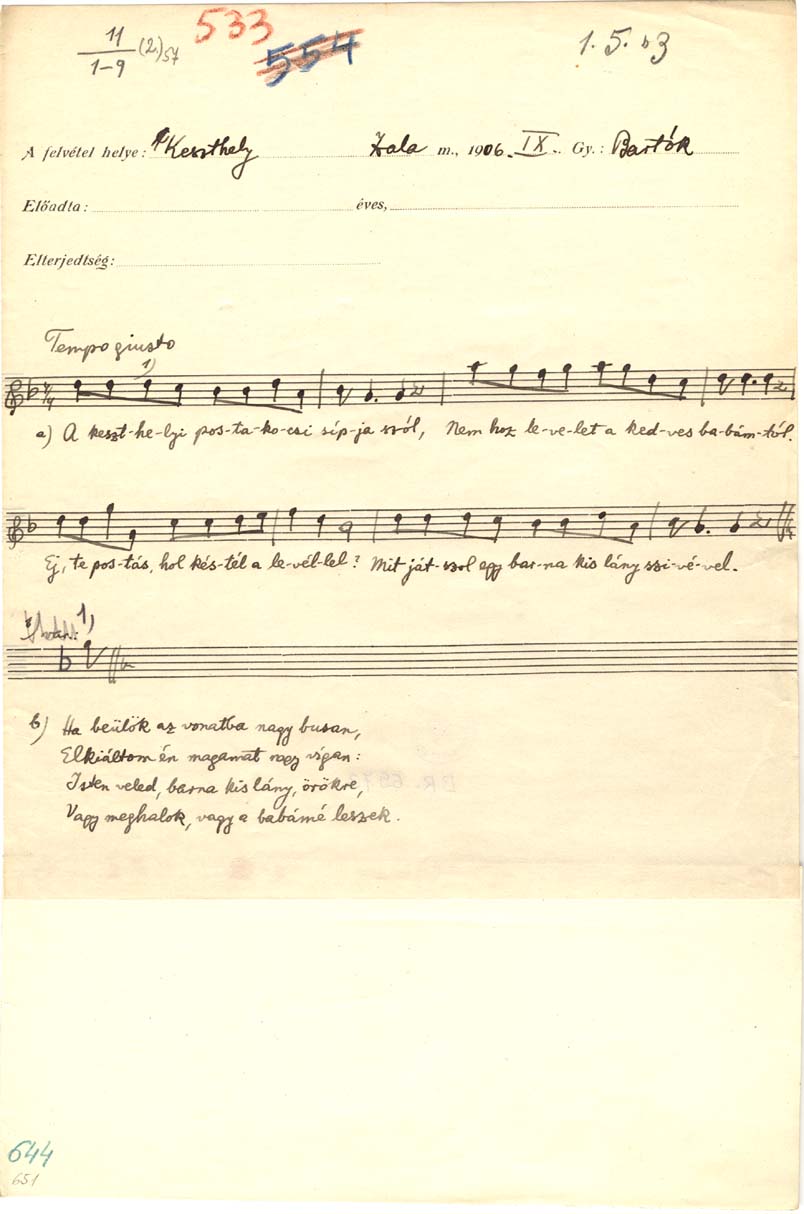 11
1-9 (2.) 57
533
554
1. 5. b3
A felvétel helye: Keszthely Zala m., 1906. IX. Gy.: Bartók
Előadta: éves,
Elterjedtség:
Tempo giusto
1)
a) A keszt-he-lyi pos-ta-ko-csi síp-ja szól, Nem hoz le-ve-let a ked-ves ba-bám-tól.
Ej, te pos-tás, hol kés-tél a le-vél-lel? Mit ját-szol egy bar-na kis lány szi-vé-vel.
var.: 1)
b) Ha beülök az vonatba nagy busan,
Elkiáltom én magamat nagy vígan:
Isten veled, barna kis lány, örökre,
Vagy meghalok, vagy a babámé leszek.
644
651